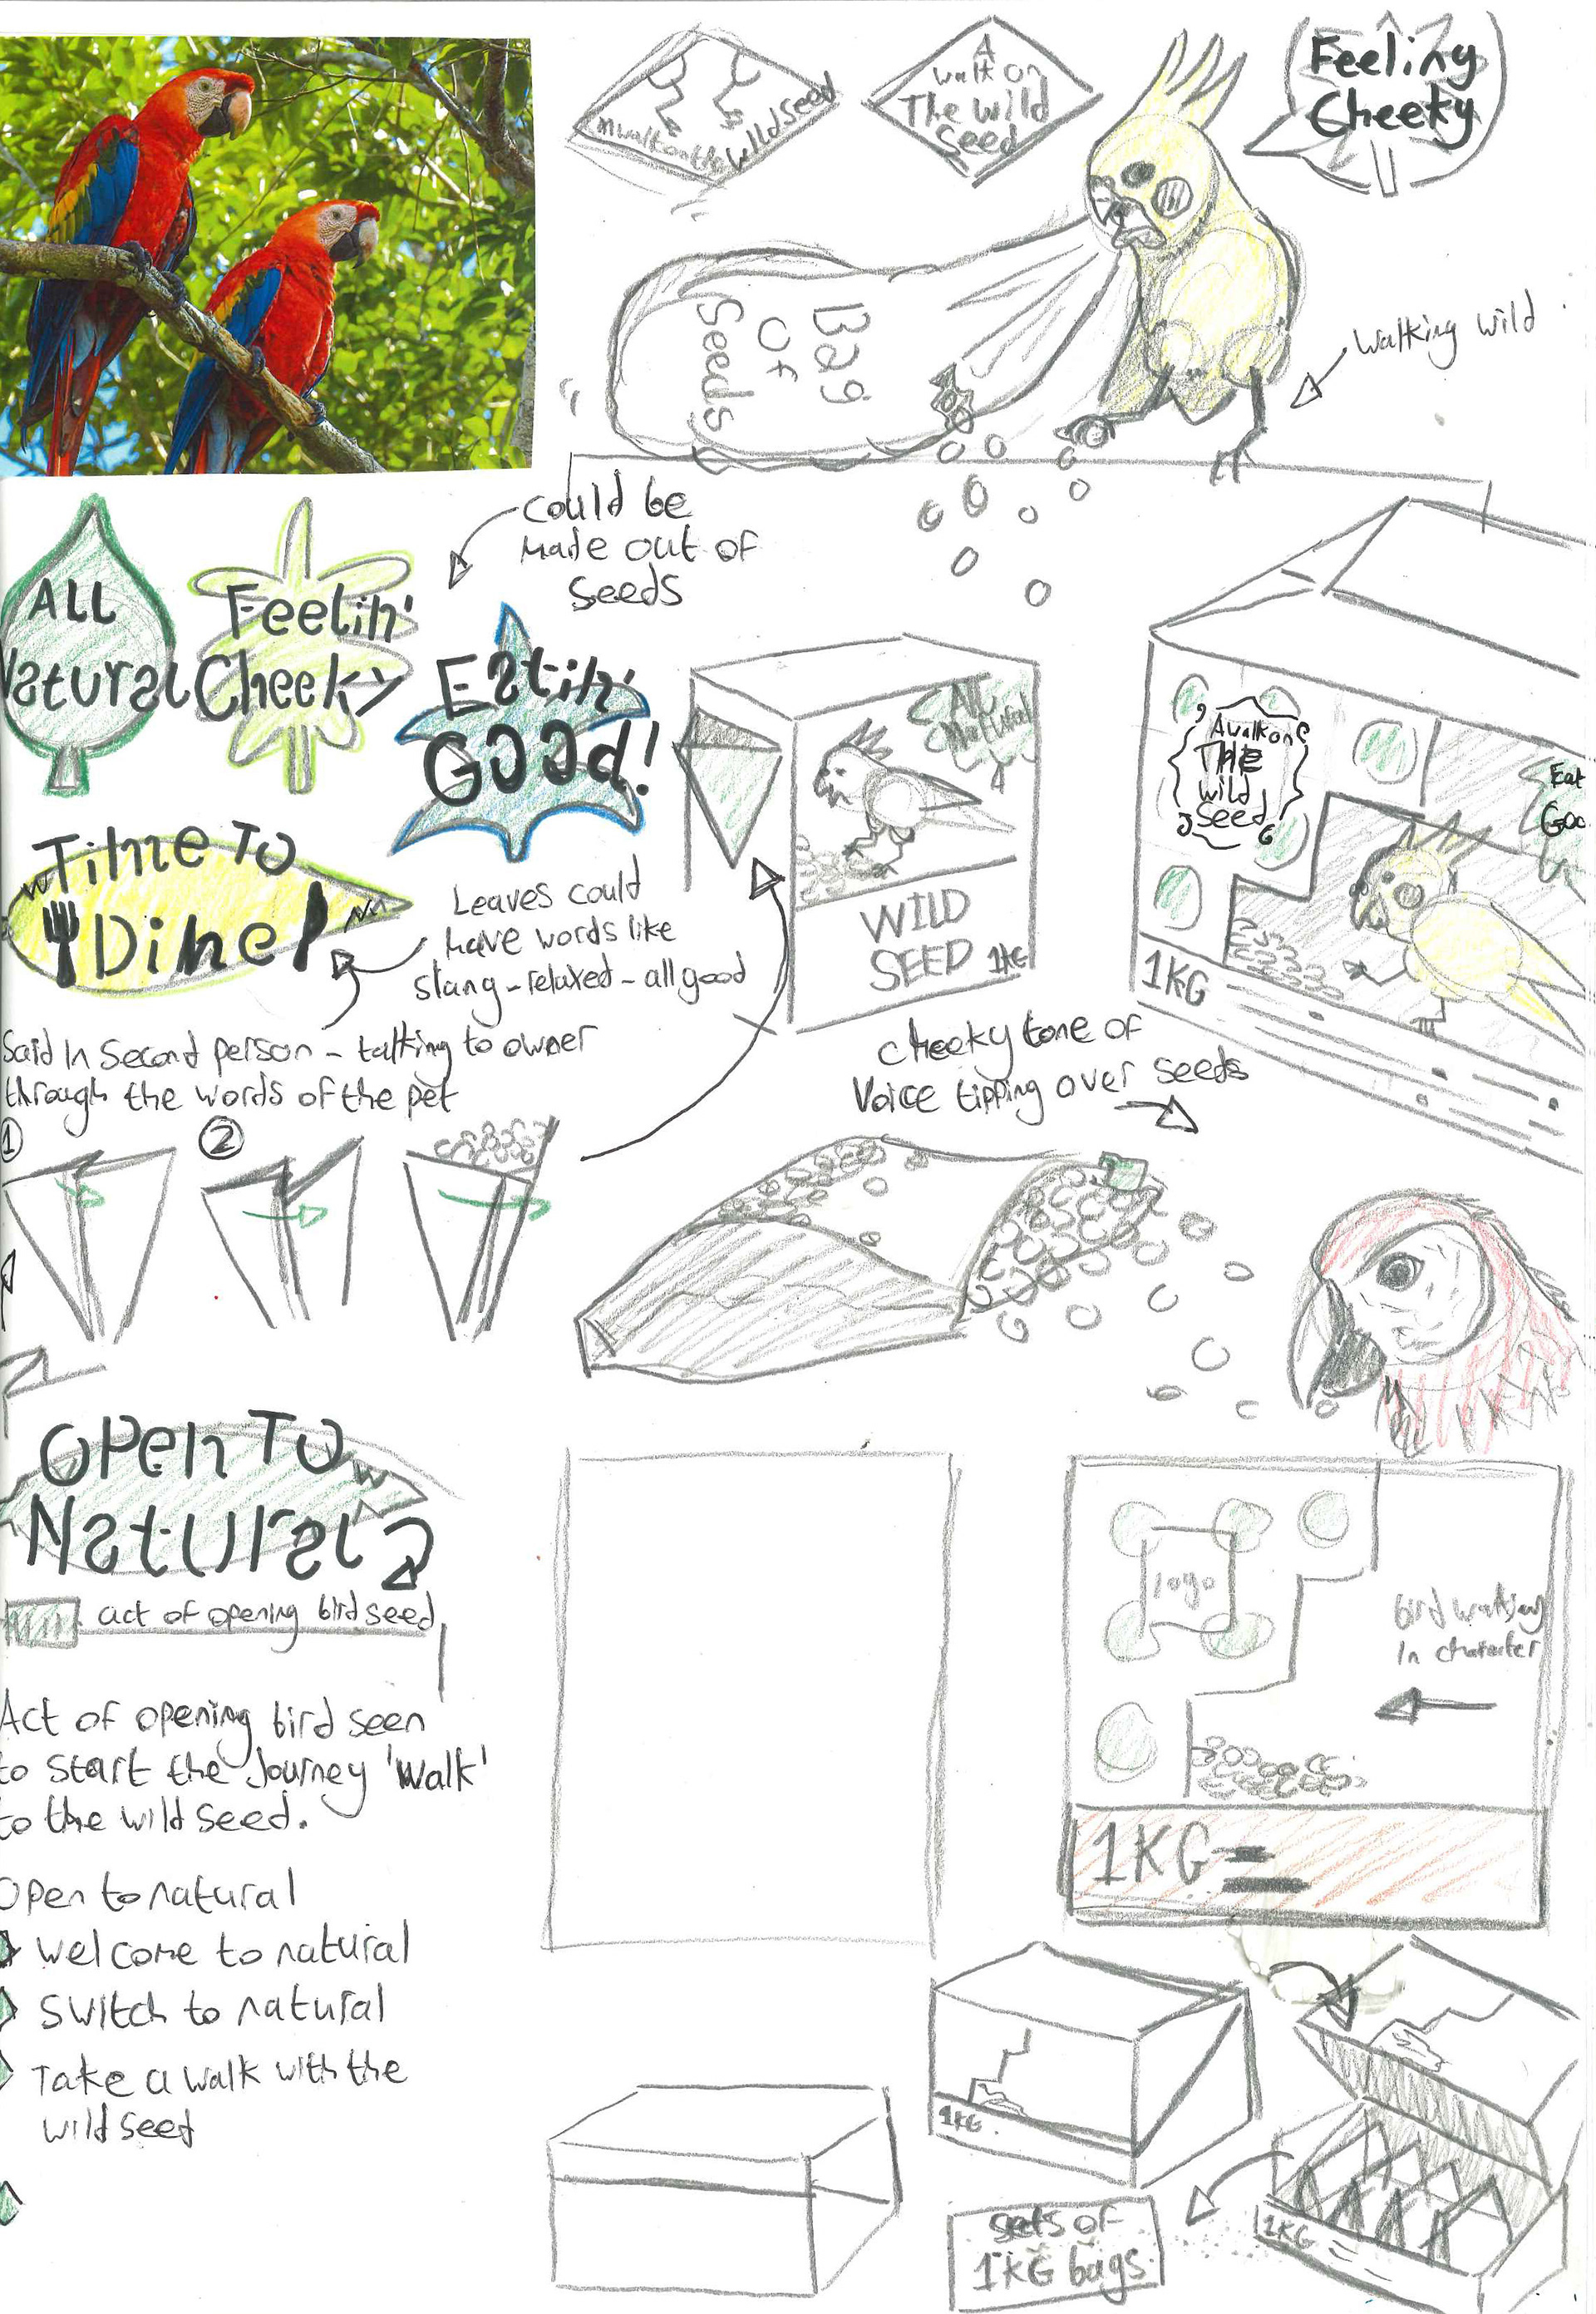 walk on the wild seed
A
walk on
The wild
Seed
Feeling
Cheeky
Bag
Of
Seeds
walking wild
could be
made out of
seeds
ALL
Natural
Feelin'
Cheeky
Eatin'
GOOd!
Time To
Dine!
Leaves could
have words like
slang - relaxed - all good
Said In Second person - talking to owner
through the words of the pet
All
Natural
WILD
SEED 1KG
A walk on
THE
wild
Seed
Eat
Goo
1KG
cheeky tone of
voice tipping over seeds
1
2
Open To
Natural
act of opening bird seed
Act of opening bird seen
to start the Journey 'walk'
to the wild seed.
Open to natural
welcome to natural
Switch to natural
Take a walk with the
wild seed
logo
bird walking
In character
1KG
1KG
1KG
sets of
1KG bags